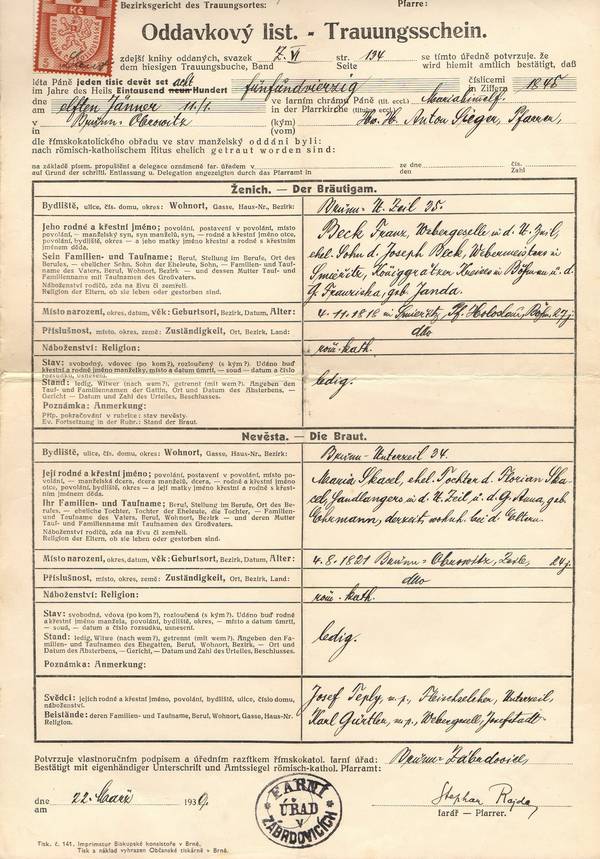 Bezirksgericht des Trauungsortes:
Pfarre:
Kč
5
Oddavkový list. - Trauungsschein.
zdejší knihy oddaných, svazek Z. VI str. 134 se tímto úředně potvrzuje, že
dem hiesigen Trauungsbuche, Band Seite wird hiemit amtlich bestätigt, daß
léta Páně jeden tisíc devět set číslicemi
im Jahre des Heils Eintausend neun Hundert fünfundvierzig in Ziffern 1845
dne elften Jänner 11/1. ve farním chrámu Páně (tit. eccl.)
am in der Pfarrkirche (tit. eccl.)
v Brünn-Obrowitz (kým) Anton Pfarrer,
in (vom)
dle římskokatolického obřadu ve stav manželský oddáni byli:
nach römisch-katholischem Ritus ehelich getraut worden sind:
na základě písem. propuštění a delegace oznámené far. úřadem v ze dne čís.
Auf Grund der schriftl. Entlassung u. Delegation angezeigten durch das Pfarramt in vom Zahl
Ženich. — Der Bräutigam.
Bydliště, ulice, čís. domu, okres: Wohnort, Gasse, Haus-Nr., Bezirk: Brünn-U. Zeil 35.
Jeho rodné a křestní jméno; povolání, postavení v povolání, místo
povolání, — manželský syn, syn manželů, syn, — rodné a křestní jméno otce,
povolání, bydliště, okres — a jeho matky jméno křestní a rodné s křestním
jménem děda.
Sein Familien- und Taufname; Beruf, Stellung im Berufe, Ort des
Berufes, — ehelicher Sohn, Sohn der Eheleute, Sohn, — Familien- und Taufname
des Vaters, Beruf, Wohnort, Bezirk — und dessen Mutter Tauf- und
Familienname mit Taufnamen des Großvaters.
Náboženství rodičů, zda na živu či zemřelí.
Religion der Eltern, ob sie leben oder gestorben sind.
Beck Franz, Webergeselle in d. U. Zeil,
ehel. Sohn d. Joseph Beck, Webermeisters in
Smiřitz, Königgrätzer Kreises in Böhmen u. d.
G. Franziska, geb. Janda.
Místo narození, okres, datum, věk: Geburtsort, Bezirk, Datum, Alter: 4. 11. 1818 in Smiřitz, Böhm. 27 j.
Příslušnost, místo, okres, země: Zuständigkeit, Ort, Bezirk, Land: dto
Náboženství: Religion: röm. kath.
Stav: svobodný, vdovec (po kom?), rozloučený (s kým?). Udáno buď
křestní a rodné jméno manželky, místo a datum úmrtí, — soud — datum a číslo
rozsudku, usnesení.
Stand: ledig, Witwer (nach wem?), getrennt (mit wem?). Angeben den
Tauf- und Familiennamen der Gattin, Ort und Datum des Absterbens, —
Gericht — Datum und Zahl des Urteiles, Beschlusses.
ledig.
Poznámka: Anmerkung:
Příp. pokračování v rubrice: stav nevěsty.
Ev. Fortsetzung in der Rubr.: Stand der Braut.
Nevěsta. — Die Braut.
Bydliště, ulice, čís. domu, okres: Wohnort, Gasse, Haus-Nr., Bezirk: Brünn-Unterzeil 34.
Její rodné a křestní jméno; povolání, postavení v povolání, místo povolání,
— manželská dcera, dcera manželů, dcera, — rodné a křestní jméno
otce, povolání, bydliště, okres — a její matky jméno křestní a rodné s křestním
jménem děda.
Ihr Familien- und Taufname; Beruf, Stellung im Berufe, Ort des Berufes,
— eheliche Tochter, Tochter der Eheleute, die Tochter, — Familien-
und Taufname des Vaters, Beruf, Wohnort, Bezirk — und deren Mutter
Tauf- und Familienname mit Taufnamen des Großvaters.
Náboženství rodičů, zda na živu či zemřelí.
Religion der Eltern, ob sie leben oder gestorben sind.
Maria Skacel, ehel. Tochter d. Florian Skacel,
Handlangers in d. U. Zeil, u. d. G. Anna, geb.
Lohrmann, derzeit wohnh. bei d. Eltern.
Místo narození, okres, datum, věk: Geburtsort, Bezirk, Datum, Alter: 4. 8. 1821 Brünn-Obrowitz, Zeile, 24 j.
Příslušnost, místo, okres, země: Zuständigkeit, Ort, Bezirk, Land: dto
Náboženství: Religion: röm. kath.
Stav: svobodná, vdova (po kom?), rozloučená (s kým?). Udáno buď rodné
a křestní jméno manžela, povolání, bydliště, okres, — místo a datum úmrtí,
— soud, — datum a číslo rozsudku, usnesení.
Stand: ledig, Witwe (nach wem?), getrennt (mit wem?). Angeben den Familien-
und Taufnamen des Ehegatten, Beruf, Wohnort, Bezirk, — Ort und
Datum des Absterbens, — Gericht — Datum und Zahl des Urteiles, Beschlusses.
ledig.
Poznámka: Anmerkung:
Svědci: jejich rodné a křestní jméno, povolání, bydliště, ulice, číslo domu,
náboženství.
Beistände: deren Familien- und Taufname, Beruf, Wohnort, Gasse, Haus-Nr.
Religion.
Josef Teply, m. p., Fleischselcher, Unterzeil,
Karl Gürtler, m. p., Webergesell, Josefstadt
Potvrzuje vlastnoručním podpisem a úředním razítkem římskokatol. farní úřad: Brünn-Zábrdovice
Bestätigt mit eigenhändiger Unterschrift und Amtssiegel römisch-kathol. Pfarramt:
dne 22. März 1939.
am
FARNÍ
ÚŘAD
V
ZÁBRDOVICÍCH
Stephan Rajda
farář — Pfarrer.
Tisk. č. 141. Imprimatur Biskupské konsistoře v Brně.
Tisk a náklad vyhrazen Občanské tiskárně v Brně.